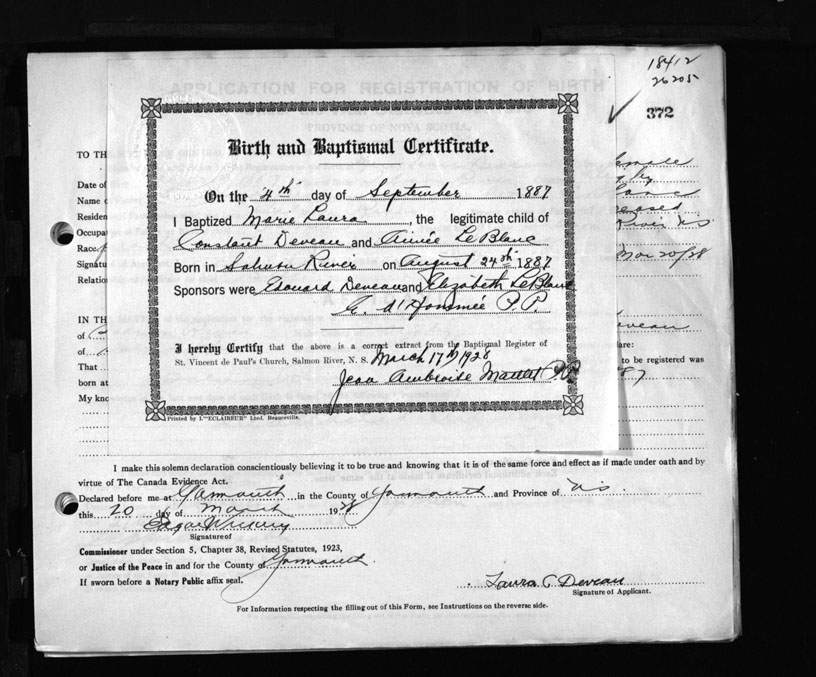 18412
26205
372
APPLICATION FOR REGISTRATION OF BIRTH
PROVINCE OF NOVA SCOTIA
Birth and Baptismal Certificate.
On the 4th day of September 1887
I Baptized Marie Laura, the legitimate child of
Constant Deveau and Aimée LeBlanc
Born in Salmon River on August 24th 1887
Sponsors were Edouard Deveau and Elizabeth LeBlanc
C. d'Hommée P.P.
I hereby Certify that the above is a correct extract from the Baptismal Register of
St. Vincent de Paul's Church, Salmon River, N. S. March 17th 1928
Jean Ambroise P.P.
Printed by L'"ECLAIREUR" Lted. Beauceville.
TO TH
Date of
Name
Residen
Occupa
Race
Signatu
Relatio
River NS
Mar 20/28
IN TH
of
Deveau
of
lare:
That
to be registered was
born at
87
My kno
I make this solemn declaration conscientiously believing it to be true and knowing that it is of the same force and effect as if made under oath and by
virtue of The Canada Evidence Act.
Declared before me at Yarmouth in the County of Yarmouth and Province of NS
this 20 day of March 1928
Edgar
Signature of
Commissioner under Section 5, Chapter 38, Revised Statutes, 1923,
or Justice of the Peace in and for the County of Yarmouth.
If sworn before a Notary Public affix seal.
Laura C Deveau
Signature of Applicant.
For Information respecting the filling out of this Form, see Instructions on the reverse side.